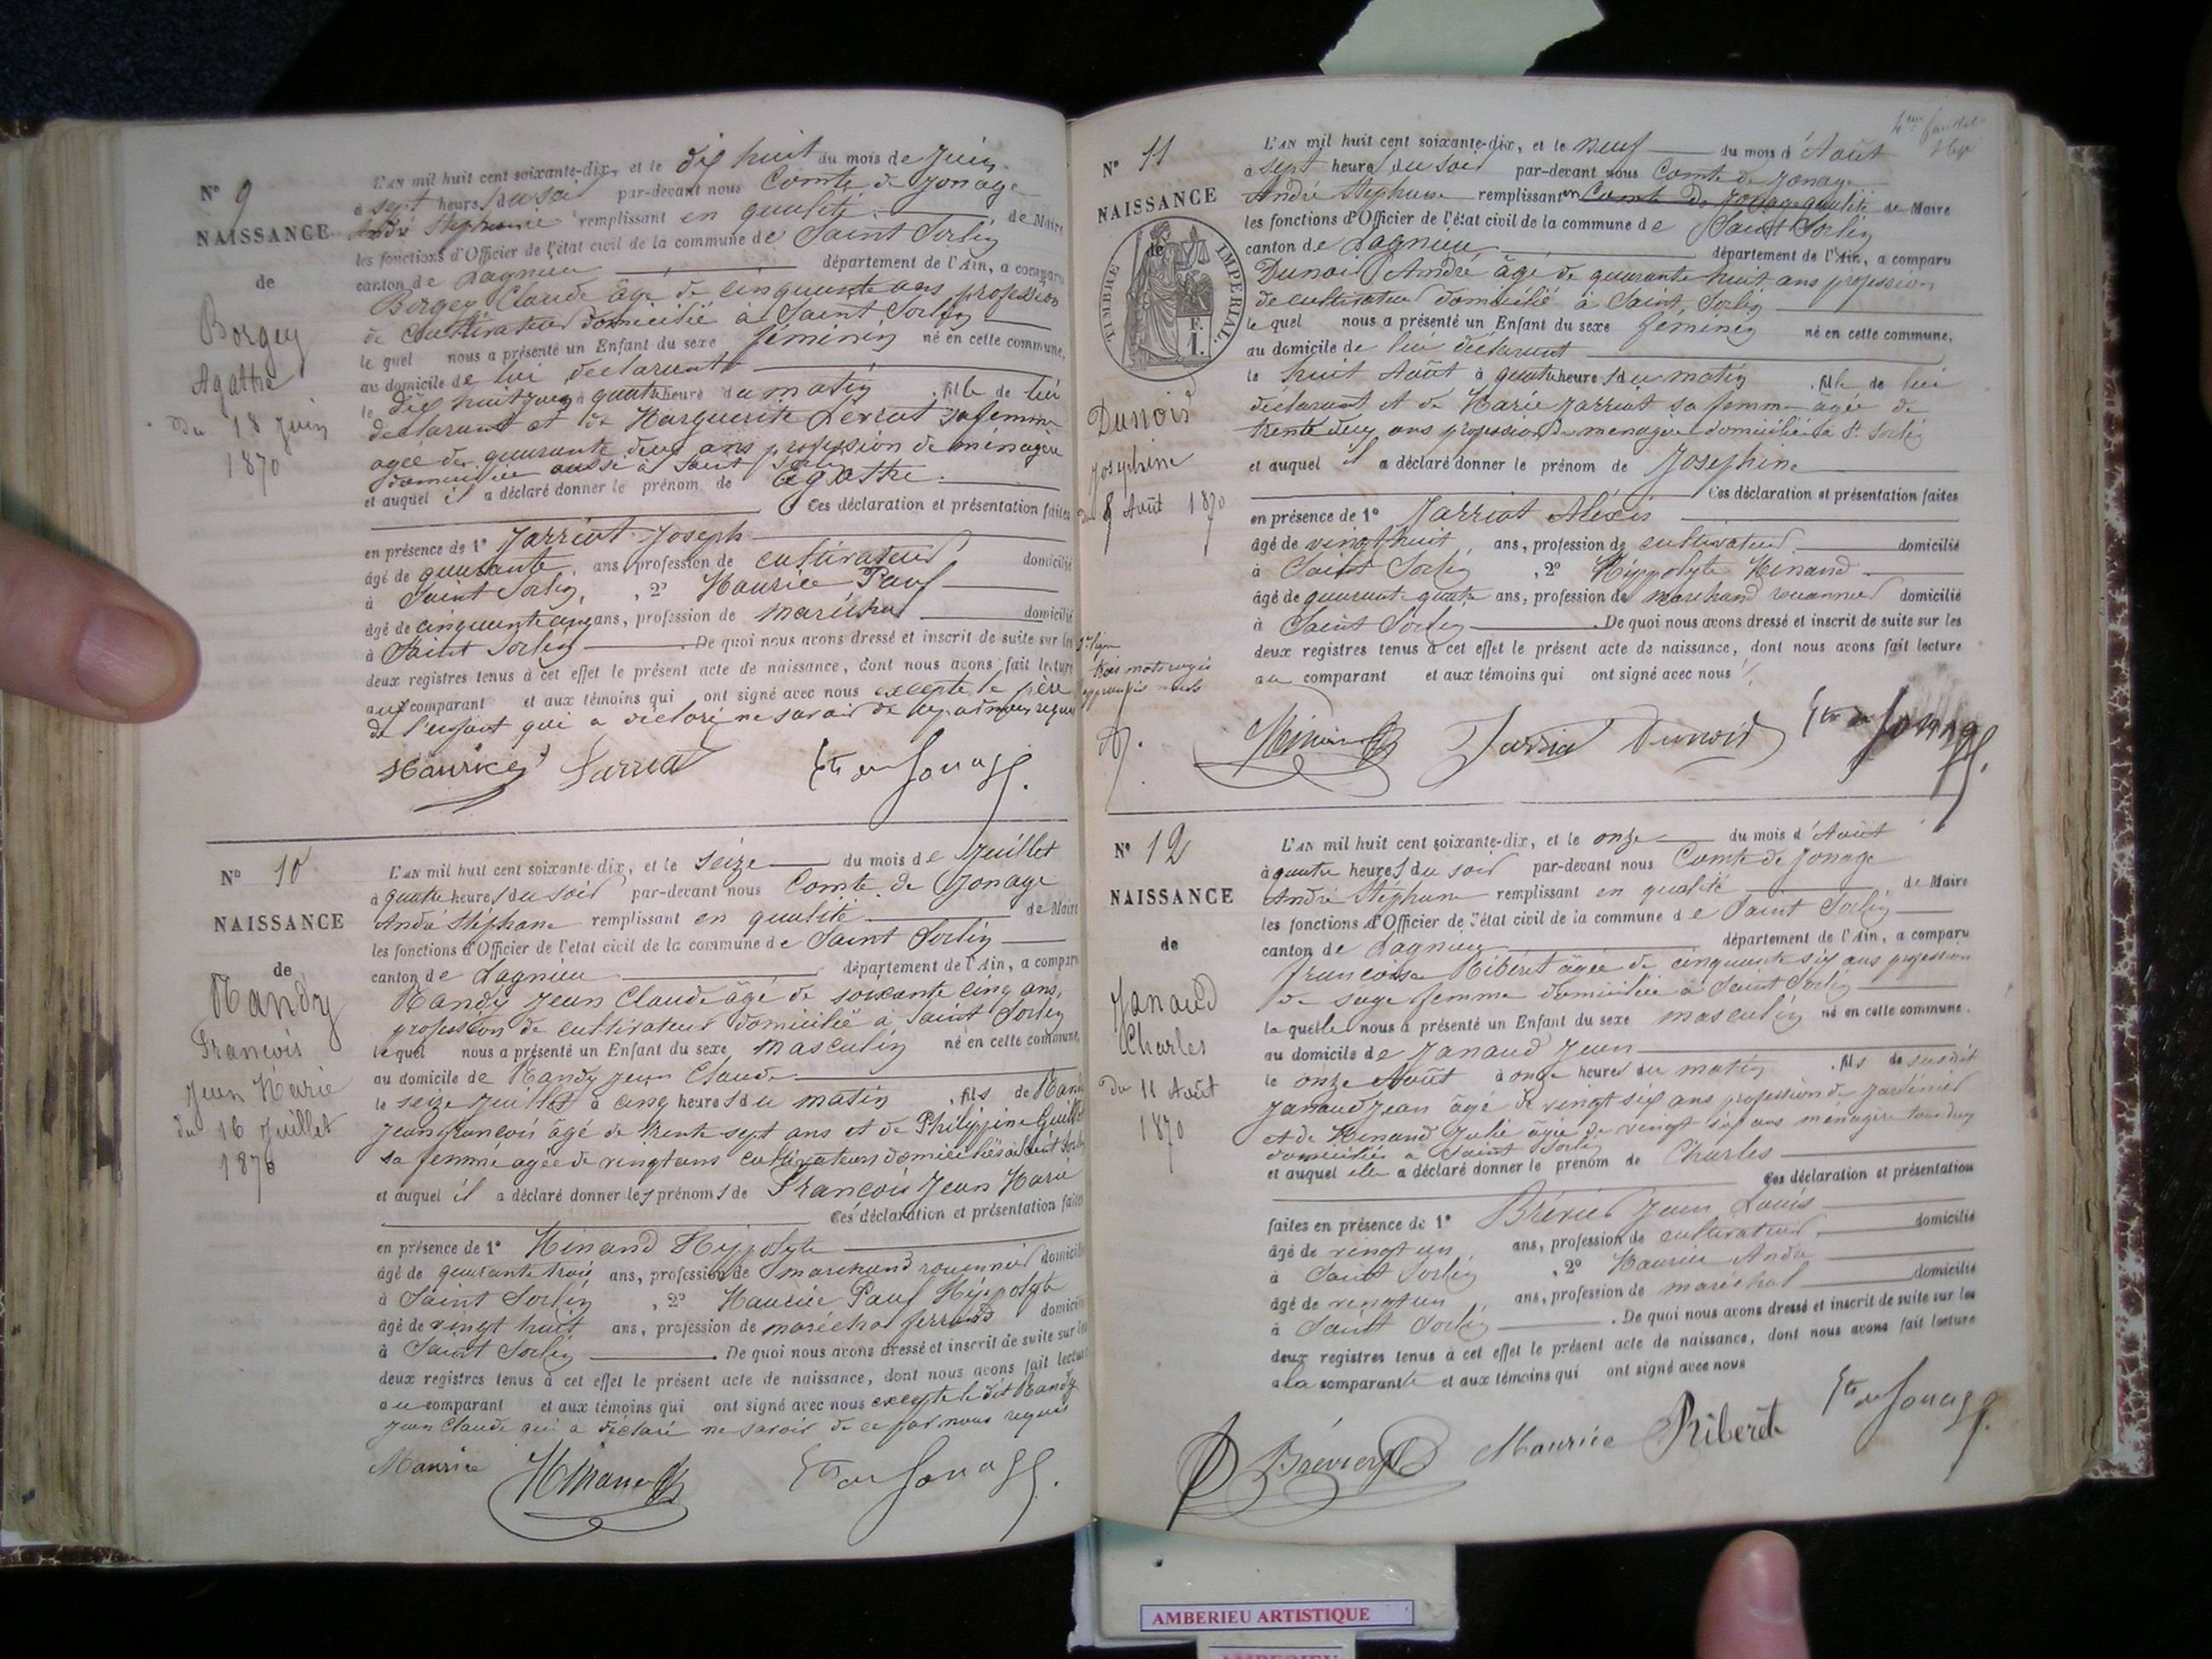 N° 9
NAISSANCE
de
Borgey
Agathe
Du 18 Juin
1870
L'AN mil huit cent soixante-dix, et le dix huit du mois de Juin
à sept heures du soir par-devant nous Comte de Jonage
André Stéphane remplissant en qualité de Maire
les fonctions d'Officier de l'état civil de la commune de Saint Sorlin
canton de Lagnieu département de l'Ain, a comparu
Borgey Claude âgé de cinquante ans profession
de cultivateur domicilié à Saint Sorlin
le quel nous a présenté un Enfant du sexe féminin né en cette commune,
au domicile de lui déclarant
le dix huit Juin à quatre heures du matin , fille de lui
déclarant et de Marguerite Levrat sa femme
agée de quarante deux ans profession de ménagère
domiciliée aussi à Saint Sorlin
et auquel il a déclaré donner le prénom de Agathe
Ces déclaration et présentation faites
en présence de 1° Jarriat Joseph
âgé de quarante ans, profession de cultivateur domicilié
à Saint Sorlin, , 2° Maurice Paul
âgé de cinquante cinq ans, profession de maréchal domicilié
à Saint Sorlin . De quoi nous avons dressé et inscrit de suite sur les
deux registres tenus à cet effet le présent acte de naissance, dont nous avons fait lecture
aux comparant et aux témoins qui ont signé avec nous excepté le père
de l'enfant qui a déclaré ne savoir de ce par nous requis
Maurice Jarriat Cte de Jonage
N° 10
NAISSANCE
de
Nandy
Francois
Jean Marie
du 16 Juillet
1870
L'AN mil huit cent soixante-dix, et le seize du mois de Juillet
à quatre heures du soir par-devant nous Comte de Jonage
André Stéphane remplissant en qualité de Maire
les fonctions d'Officier de l'état civil de la commune de Saint Sorlin
canton de Lagnieu département de l'Ain, a comparu
Nandy Jean Claude âgé de soixante cinq ans,
profession de cultivateur domicilié à Saint Sorlin
le quel nous a présenté un Enfant du sexe masculin né en cette commune,
au domicile de Nandy Jean Claude
le seize Juillet à cinq heures du matin , fils de Nandy
Jean francois âgé de trente sept ans et de Philippine
sa femme agée de vingt ans cultivateurs domiciliés à Saint Sorlin
et auquel il a déclaré donner les prénoms de Francois Jean Marie
Ces déclaration et présentation faites
en présence de 1° Minand Hippolyte
âgé de quarante trois ans, profession de marchand rouennier domicilié
à Saint Sorlin , 2° Maurice Paul Hippolyte
âgé de vingt huit ans, profession de maréchal ferrand domicilié
à Saint Sorlin . De quoi nous avons dressé et inscrit de suite sur les
deux registres tenus à cet effet le présent acte de naissance, dont nous avons fait lecture
au comparant et aux témoins qui ont signé avec nous excepté le dit Nandy
Jean Claude qui a déclaré ne savoir de ce par nous requis
Maurice HMinand Cte de Jonage
N° 11
NAISSANCE
de
TIMBRE IMPERIAL.
F. 1.
Dunoid
Josephine
du 8 Août 1870
L'AN mil huit cent soixante-dix, et le neuf du mois d'Août
à sept heures du soir par-devant nous Comte de Jonage
André Stéphane remplissant en Comte de Jonage qualité de Maire
les fonctions d'Officier de l'état civil de la commune de Saint Sorlin
canton de Lagnieu département de l'Ain, a comparu
Dunoid André âgé de quarante huit ans profession
de cultivateur domicilié à Saint Sorlin
le quel nous a présenté un Enfant du sexe féminin né en cette commune,
au domicile de lui déclarant
le huit Août à quatre heures du matin , fille de lui
déclarant et de Marie Jarriat sa femme âgée de
trente deux ans profession de menagère domiciliée à St Sorlin
et auquel il a déclaré donner le prénom de Josephine
Ces déclaration et présentation faites
en présence de 1° Jarriat Aléxis
âgé de vingt huit , ans, profession de cultivateur domicilié
à Saint Sorlin , 2° Hippolyte Minand
âgé de quarante quatre ans, profession de marchand rouennier domicilié
à Saint Sorlin . De quoi nous avons dressé et inscrit de suite sur les
deux registres tenus à cet effet le présent acte de naissance, dont nous avons fait lecture
au comparant et aux témoins qui ont signé avec nous
ligne
trois mots rayés
approuvés nuls
HMinand Jarriat Dunoid Cte de Jonage
N° 12
NAISSANCE
de
Janaud
Charles
Du 11 Août
1870
L'AN mil huit cent soixante-dix, et le onze du mois d'Août
à quatre heures du soir par-devant nous Comte de Jonage
André Stéphane remplissant en qualité de Maire
les fonctions d'Officier de l'état civil de la commune de Saint Sorlin
canton de Lagnieu département de l'Ain, a comparu
francoise Ribéret âgée de cinquante six ans profession
de sage femme domiciliée à Saint Sorlin
la quelle nous a présenté un Enfant du sexe masculin né en cette commune,
au domicile de Janaud Jean
le onze Août à onze heures du matin , fils de susdit
Janaud Jean âgé de vingt six ans profession de jardinier
et de Minand Julie âgée de vingt six ans menagère tous deux
domiciliés à Saint Sorlin
et auquel elle a déclaré donner le prénom de Charles
Ces déclaration et présentation
faites en présence de 1° Brévier Jean Louis
âgé de vingt un , ans, profession de cultivateur domicilié
à Saint Sorlin , 2° Maurice André
âgé de vingt un ans, profession de maréchal domicilié
à Saint Sorlin . De quoi nous avons dressé et inscrit de suite sur les
deux registres tenus à cet effet le présent acte de naissance, dont nous avons fait lecture
a la comparante et aux témoins qui ont signé avec nous
Brévier Maurice Riberet Cte de Jonage
AMBERIEU ARTISTIQUE
AMBERIEU